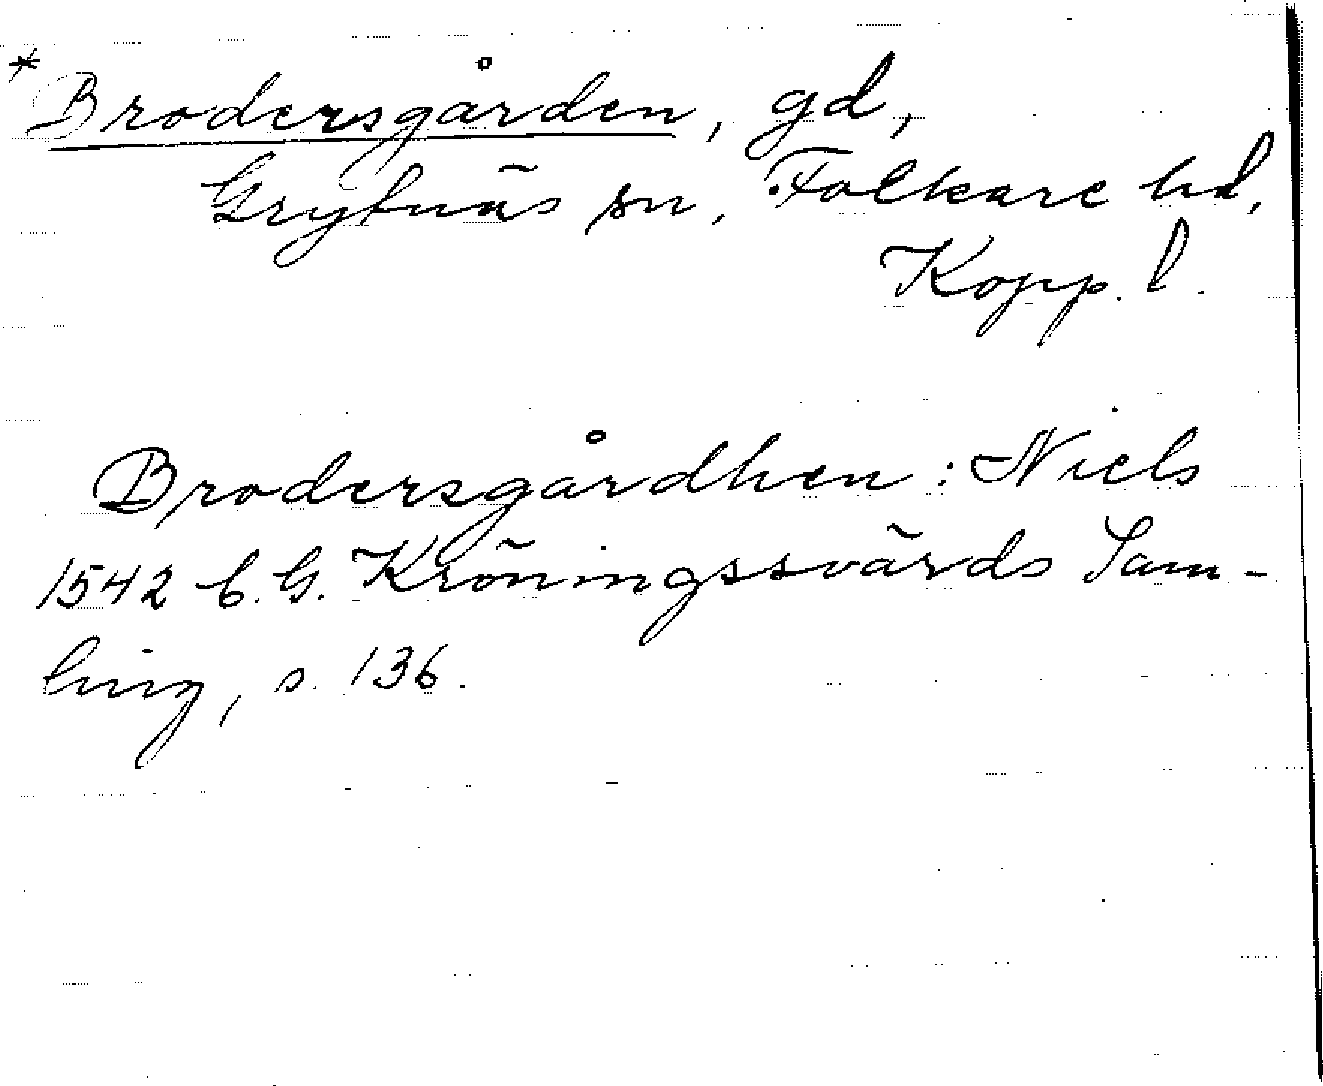 *Brodersgården, gd,
Grytnäs sn, Folkare hd,
Kopp. l.
Brodersgårdhen: Niels
1542 C. G. Kröningssvärds Sam-
ling, s. 136.